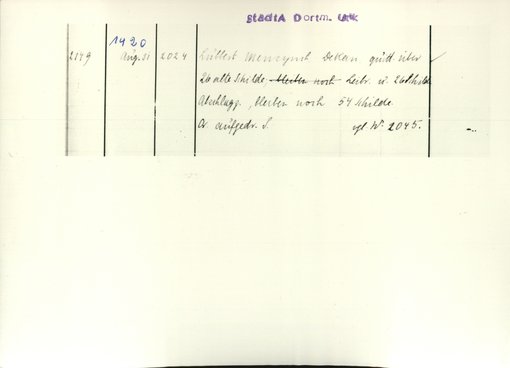 StadtA Dortm. Urk
1420
2149 Aug. 31 2024 Lubbert Dekan quitt. über ✓
26 alte Schilde Bleiben noch Leibr. u. 26 Schilde
Abschlagg., bleiben noch 54 Schilde.
Or aufgedr. S. vgl. No. 2045.